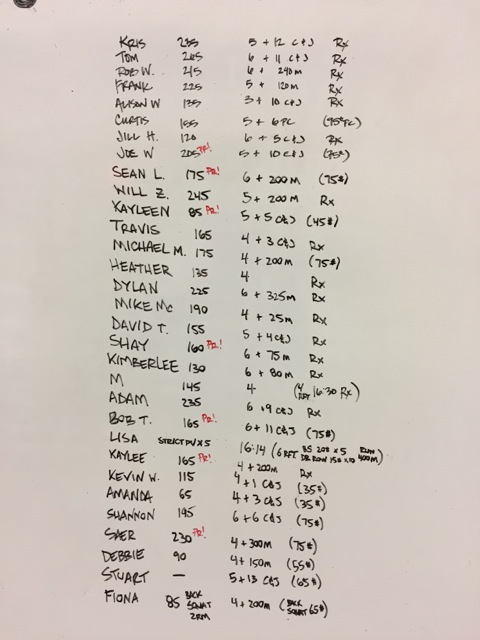 KRIS 235 5 + 12 C&J Rx
TOM 265 6 + 11 C&J Rx
ROB W. 215 6 + 240m Rx
FRANK 225 5 + 120m Rx
ALISON W 135 3 + 10 C&J Rx
CURTIS 155 5 + 6 PC (95# PC)
JILL H. 120 6 + 5 C&J Rx
JOE W 205 PR! 5 + 10 C&J (95#)
SEAN L. 175 PR! 6 + 200m (75#)
WILL Z. 245 5 + 200m Rx
KAYLEEN 85 PR! 5 + 5 C&J (45#)
TRAVIS 165 4 + 3 C&J Rx
MICHAEL M. 175 4 + 200m (75#)
HEATHER 135 4 Rx
DYLAN 225 6 + 325m Rx
MIKE Mc 190 4 + 25m Rx
DAVID T. 155 5 + 4 C&J Rx
SHAY 160 PR! 6 + 75m Rx
KIMBERLEE 130 6 + 80m Rx
M 145 4 (4 RFT 16:30 Rx)
ADAM 235 6 + 9 C&J Rx
BOB T. 165 PR! 6 + 11 C&J (75#)
LISA STRICT PU X 5 16:14 (6 RFT BS 20# x 5 RUN DB ROW 15# x 10 400m)
KAYLEE 165 PR! 4 + 200m Rx
KEVIN W. 115 4 + 1 C&J (35#)
AMANDA 65 4 + 3 C&J (35#)
SHANNON 195 6 + 6 C&J (75#)
SAER 230 PR! 4 + 300m (75#)
DEBBIE 90 4 + 150m (55#)
STUART — 5 + 13 C&J (65#)
FIONA 85 BACK SQUAT 2RM 4 + 200m (BACK SQUAT 65#)